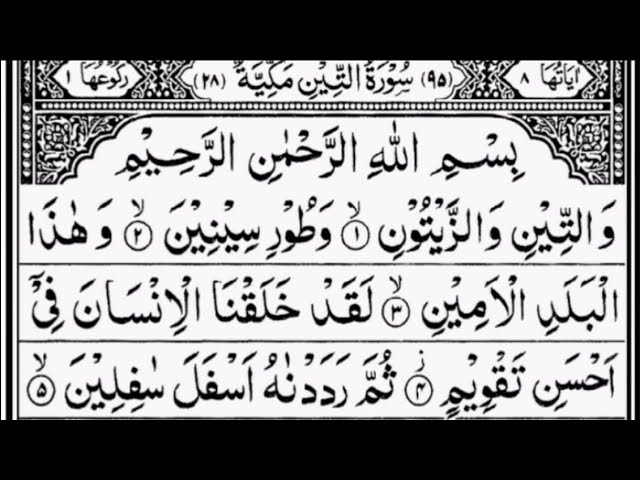 اٰيَاتُهَا ٨ (٩٥) سُوْرَةُ التِّيْنِ مَكِّيَّةٌ (٢٨) رُكُوْعُهَا ١
بِسْمِ اللّٰهِ الرَّحْمٰنِ الرَّحِيْمِ
وَالتِّيْنِ وَالزَّيْتُوْنِ ۙ﴿١﴾ وَطُوْرِ سِيْنِيْنَ ۙ﴿٢﴾ وَهٰذَا
الْبَلَدِ الْاَمِيْنِ ۙ﴿٣﴾ لَقَدْ خَلَقْنَا الْاِنْسَانَ فِيْۤ
اَحْسَنِ تَقْوِيْمٍ ؗ﴿٤﴾ ثُمَّ رَدَدْنٰهُ اَسْفَلَ سٰفِلِيْنَ ۙ﴿٥﴾